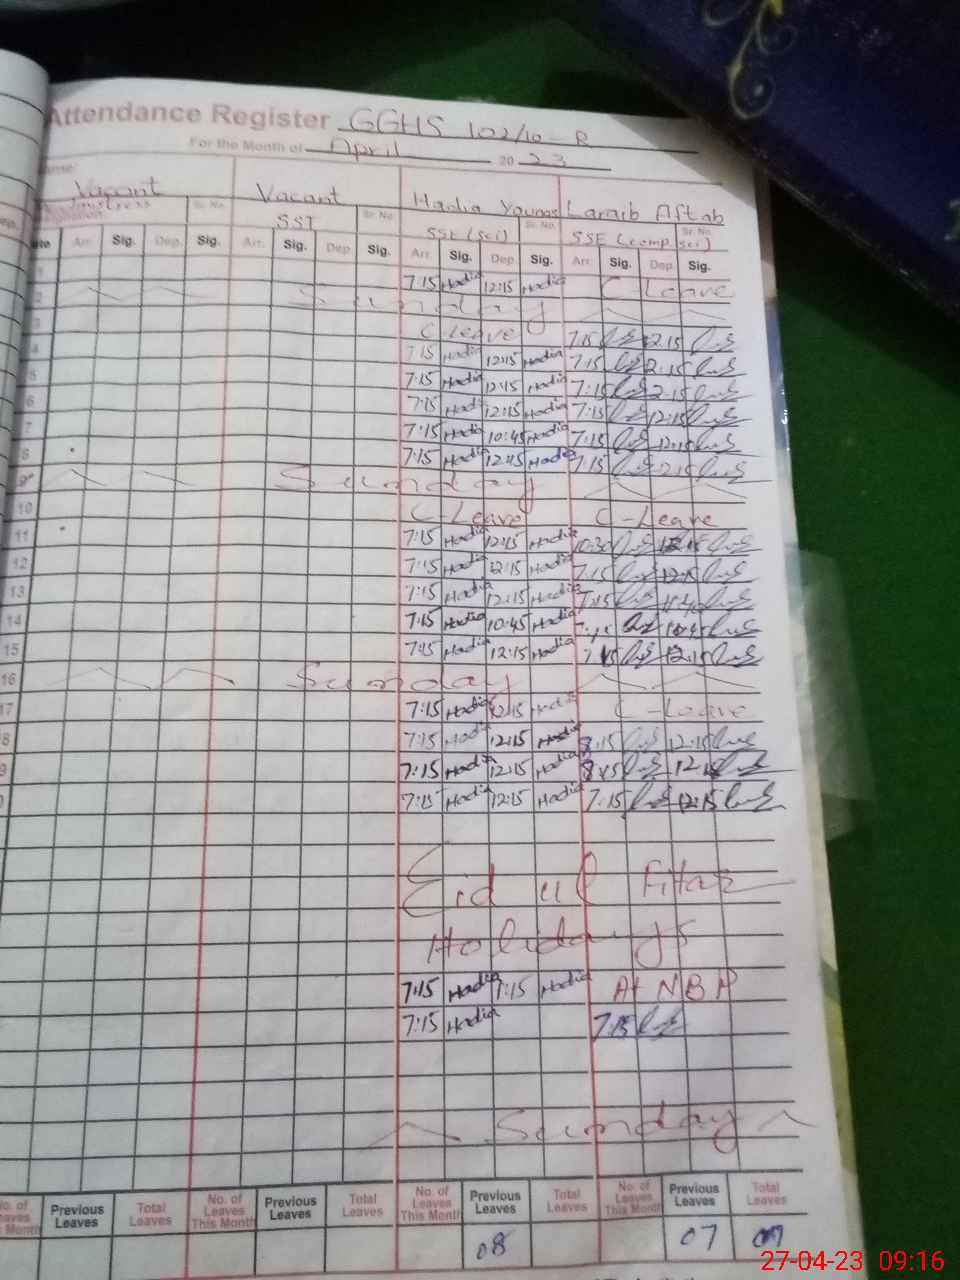 Attendance Register GGHS 102/10-R
For the Month of April 2023
Vacant Vacant Hadia Younas Laraib Aftab
Sr. No. SST Sr. No. SSE (Sci) Sr. No. SSE (comp. sci) Sr. No.
Arr. Sig. Dep. Sig. Arr. Sig. Dep. Sig. Arr. Sig. Dep. Sig. Arr. Sig. Dep. Sig.
7:15 Hadia 12:15 Hadia C-Leave
2 Sunday
3 C-Leave 7:15 12:15
4 7:15 Hadia 12:15 Hadia 7:15 12:15
5 7:15 Hadia 12:15 Hadia 7:15 12:15
6 7:15 Hadia 12:15 Hadia 7:15 12:15
7 7:15 Hadia 10:45 Hadia 7:15
8 7:15 Hadia 12:15 Hadia 7:15 12:15
9 Sunday
10 C-Leave C-Leave
11 7:15 Hadia 12:15 Hadia 10:30 12:15
12 7:15 Hadia 12:15 Hadia 7:15 12:15
13 7:15 Hadia 12:15 Hadia 7:15
14 7:15 Hadia 10:45 Hadia 7:15
15 7:15 Hadia 12:15 Hadia 7:15 12:15
16 Sunday
17 7:15 Hadia 12:15 Hadia C-Leave
8 7:15 Hadia 12:15 Hadia 8:15 12:15
9 7:15 Hadia 12:15 Hadia 12:15
7:15 Hadia 12:15 Hadia 7:15 12:15
Eid ul Fitar
Holidays
7:15 Hadia 1:15 Hadia At NBP
7:15 Hadia 7:15
Sunday
No. of Leaves This Month Previous Leaves Total Leaves No. of Leaves This Month Previous Leaves Total Leaves No. of Leaves This Month Previous Leaves Total Leaves No. of Leaves This Month Previous Leaves Total Leaves
08 07
27-04-23 09:16